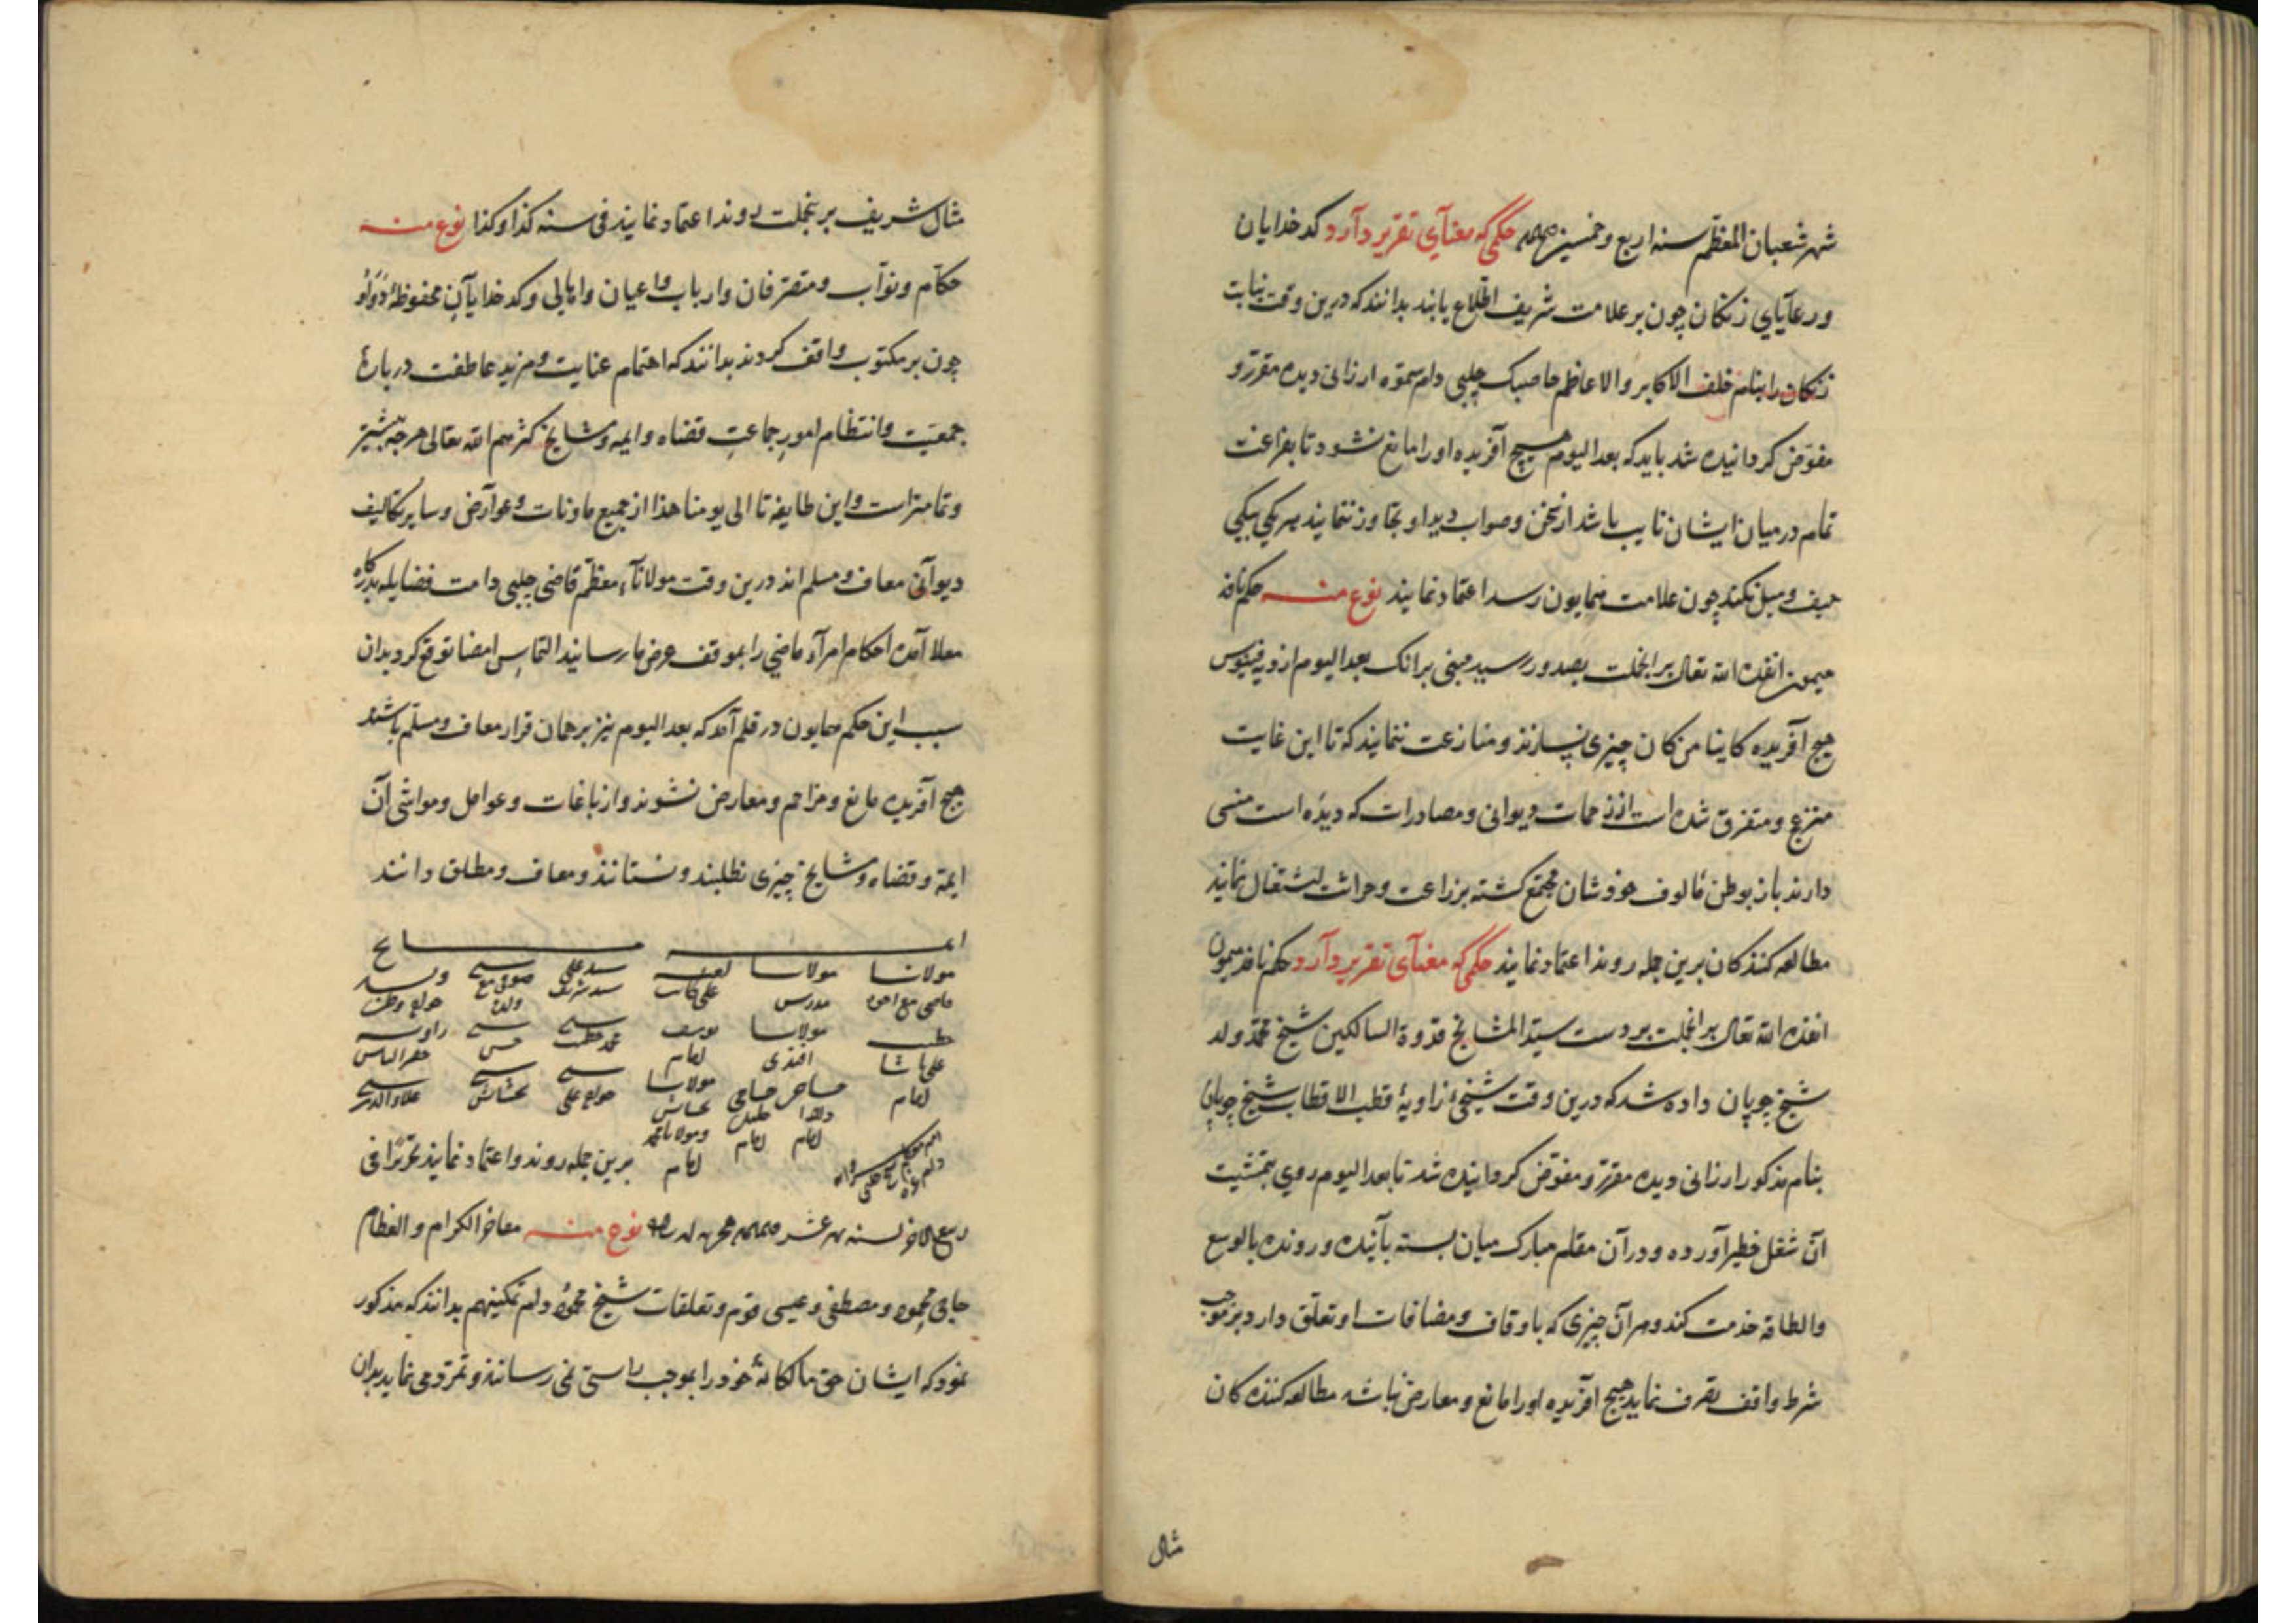 شهر شعبان المعظم سنه اربع وخمسین حکمی که معنآی تقریر دآرد کدخدایان
ورعآیای زنکان چون بر علامت شریف اطلاع یابند بدانند که درین وقت نیابت
زنکان را بنام خلف الاکابر والاعاظم چلبی دام سموّه ارزانی دیده مقرّر و
مفوّض کردانیده شد باید که بعد الیوم هیچ آفریده اورا مانع نشود تا بفراغت
تمام در میان ایشان نایب باشد از سخن وصواب دید او تجاوز ننمایند
حیف ومیل نکند چون علامت همایون رسد اعتماد نمایند نوع منه حکم نافذ
میمون انفذه الله تعالی برانجملت بصدور رسید مبنی برانک بعد الیوم از دیه
هیچ آفریده کاینا من کان چیزی نسازند ومنازعت ننمایند که تا این غایت
منزعج ومتفرق شده است از زحمات دیوانی ومصادرات که دیده است منسی
دارند باز بوطن مألوف خودشان مجتمع کشته بزراعت وحراثت اشتغال نمایند
مطالعه کنندکان برین جمله روند اعتماد نمایند حکمی که معنآی تقریر دآرد حکم نافذ میمون
انفذه الله تعالی برانجملت بر دست سیّد المشایخ قدوة السالکین شیخ محمّد ولد
شیخ چوپان داده شد که درین وقت شیخیء زاویهٔ قطب الاقطاب شیخ چوپان
بنام مذکور ارزانی دیده مقرّر ومفوّض کردانیده شد تا بعد الیوم روی بتمشیت
آن شغل خطیر آورده ودر آن مقام مبارک میان بسته بآینده ورونده بالوسع
والطاقه خدمت کند وهر آن چیزی که باوقاف ومضافات او تعلّق دارد بر موجب
شرط واقف تصرف نماید هیچ افریده اورا مانع ومعارض نباشد مطالعه کننده کان
مثال
مثال شریف برینجملت روند اعتماد نمایند فی سنه کذا وکذا نوع منه
حکّام ونوّاب ومتصرّفان وارباب واعیان واهالی وکدخدایآن محفوظهٔ
چون بر مکتوب واقف کردند بدانند که اهتمام عنایت ومزید عاطفت دربارهٔ
جمعیّت وانتظام امورِ جماعتِ قضاه وایمه ومشایخ کثّرهم الله تعالی هرچه بیشتر
وتمامتر است واین طایفه تا الی یومنا هذا از جمیع ماونات وعوارض وسایر تکالیف
دیوآنی معاف ومسلم اند درین وقت مولاناء معظّم قاضی چلبی دامت فضایله بدرکاه
معلا آمده احکام امرآء ماضی را بموقف عرض ما رسانید التماس امضا توقّع کرد بدان
سبب این حکم همایون در قلم آمد که بعد الیوم نیز بر همان قرار معاف ومسلّم باشند
هیچ آفریده مانع ومزاحم ومعارض نشوند واز باغات وعوامل ومواشی آن
ایمّه وقضاه ومشایخ چیزی نطلبند ونستانند ومعاف ومطلق دانند
ایمه مشایخ
مولانا مولانا سید علی
مدرس علی کاتب سید شریف
مولانا یوسف محمد حسن
علی پاشا افندی امام خضر الیاس
امام مولانا خواجه علی علاء الدین
امام امام ومولانا محمد
امام برین جمله روند واعتماد نمایند تحریرًا فی
ربیع الاخر لسنه نوع منه مفاخر الکرام والعظام
حاجی محمود ومصطفی وعیسی قوم وتعلقات شیخ محمود دام تمکینهم بدانند که مذکور
نمود که ایشان حق مالکانهٔ خود را بموجب راستی نمی رسانند وتمرّد می نمایند بدان